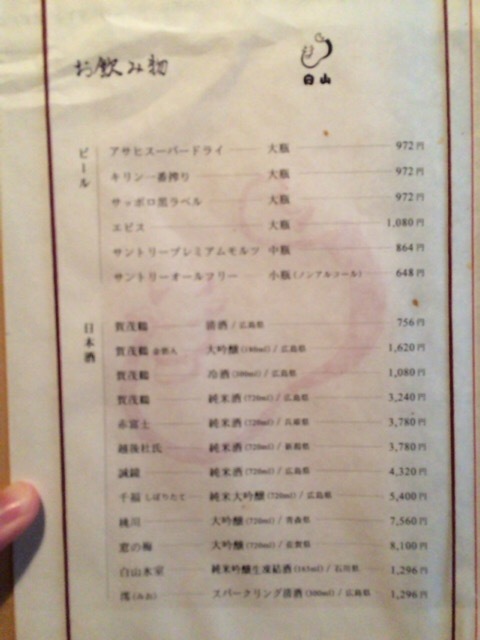 お飲み物
日山
ビール
アサヒスーパードライ 大瓶 972円
キリン一番搾り 大瓶 972円
サッポロ黒ラベル 大瓶 972円
エビス 大瓶 1,080円
サントリープレミアムモルツ 中瓶 864円
サントリーオールフリー 小瓶(ノンアルコール) 648円
日本酒
賀茂鶴 清酒/広島県 756円
賀茂鶴 大吟醸(180ml)/広島県 1,620円
賀茂鶴 冷酒(300ml)/広島県 1,080円
賀茂鶴 純米酒(720ml)/広島県 3,240円
赤富士 純米酒(720ml)/兵庫県 3,780円
越後杜氏 純米酒(720ml)/新潟県 3,780円
誠鏡 純米酒(720ml)/広島県 4,320円
千福 しぼりたて 純米大吟醸(720ml)/広島県 5,400円
桃川 大吟醸(720ml)/青森県 7,560円
窓の梅 大吟醸(720ml)/佐賀県 8,100円
白山氷室 純米吟醸生凍結酒(165ml)/石川県 1,296円
(みお) スパークリング清酒(300ml)/広島県 1,296円